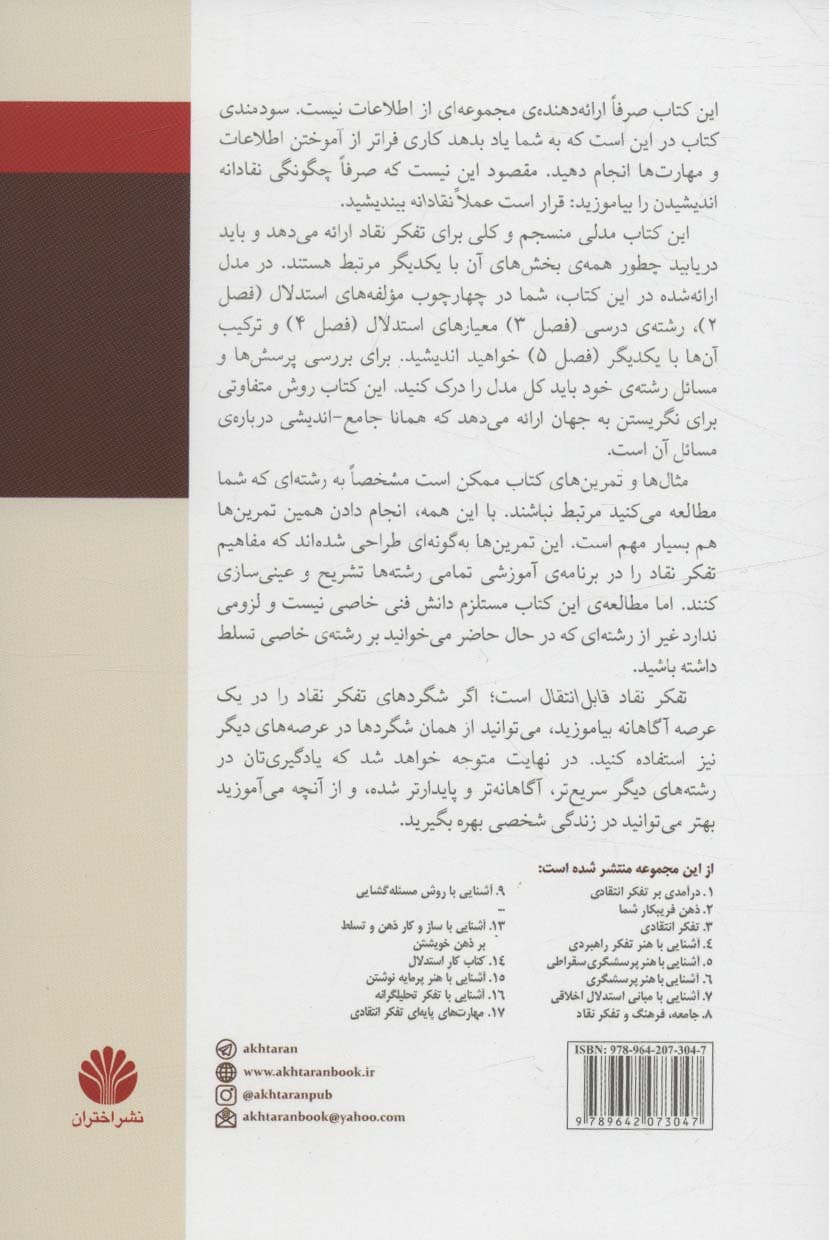 این کتاب صرفاً ارائه‌دهنده‌ی مجموعه‌ای از اطلاعات نیست. سودمندی
کتاب در این است که به شما یاد بدهد کاری فراتر از آموختن اطلاعات
و مهارت‌ها انجام دهید. مقصود این نیست که صرفاً چگونگی نقادانه
اندیشیدن را بیاموزید: قرار است عملاً نقادانه بیندیشید.
این کتاب مدلی منسجم و کلی برای تفکر نقاد ارائه می‌دهد و باید
دریابید چطور همه‌ی بخش‌های آن با یکدیگر مرتبط هستند. در مدل
ارائه‌شده در این کتاب، شما در چهارچوب مؤلفه‌های استدلال (فصل
۲)، رشته‌ی درسی (فصل ۳) معیارهای استدلال (فصل ۴) و ترکیب
آن‌ها با یکدیگر (فصل ۵) خواهید اندیشید. برای بررسی پرسش‌ها و
مسائل رشته‌ی خود باید کل مدل را درک کنید. این کتاب روش متفاوتی
برای نگریستن به جهان ارائه می‌دهد که همانا جامع-اندیشی درباره‌ی
مسائل آن است.
مثال‌ها و تمرین‌های کتاب ممکن است مشخصاً به رشته‌ای که شما
مطالعه می‌کنید مرتبط نباشند. با این همه، انجام دادن همین تمرین‌ها
هم بسیار مهم است. این تمرین‌ها به‌گونه‌ای طراحی شده‌اند که مفاهیم
تفکر نقاد را در برنامه‌ی آموزشی تمامی رشته‌ها تشریح و عینی‌سازی
کنند. اما مطالعه‌ی این کتاب مستلزم دانش فنی خاصی نیست و لزومی
ندارد غیر از رشته‌ای که در حال حاضر می‌خوانید بر رشته‌ی خاصی تسلط
داشته باشید.
تفکر نقاد قابل‌انتقال است؛ اگر شگردهای تفکر نقاد را در یک
عرصه آگاهانه بیاموزید، می‌توانید از همان شگردها در عرصه‌های دیگر
نیز استفاده کنید. در نهایت متوجه خواهد شد که یادگیری‌تان در
رشته‌های دیگر سریع‌تر، آگاهانه‌تر و پایدارتر شده، و از آنچه می‌آموزید
بهتر می‌توانید در زندگی شخصی بهره بگیرید.
از این مجموعه منتشر شده است:
۱. درآمدی بر تفکر انتقادی
۲. ذهن فریبکار شما
۳. تفکر انتقادی
۴. آشنایی با هنر تفکر راهبردی
۵. آشنایی با هنر پرسشگری سقراطی
۶. آشنایی با هنر پرسشگری
۷. آشنایی با مبانی استدلال اخلاقی
۸. جامعه، فرهنگ و تفکر نقاد
۹. آشنایی با روش مسئله‌گشایی
--
۱۳. آشنایی با ساز و کار ذهن و تسلط
بر ذهن خویشتن
۱۴. کتاب کار استدلال
۱۵. آشنایی با هنر پرمایه نوشتن
۱۶. آشنایی با تفکر تحلیلگرانه
۱۷. مهارت‌های پایه‌ای تفکر انتقادی
akhtaran
www.akhtaranbook.ir
@akhtaranpub
akhtaranbook@yahoo.com
ISBN: 978-964-207-304-7
9 789642 073047
نشر اختران